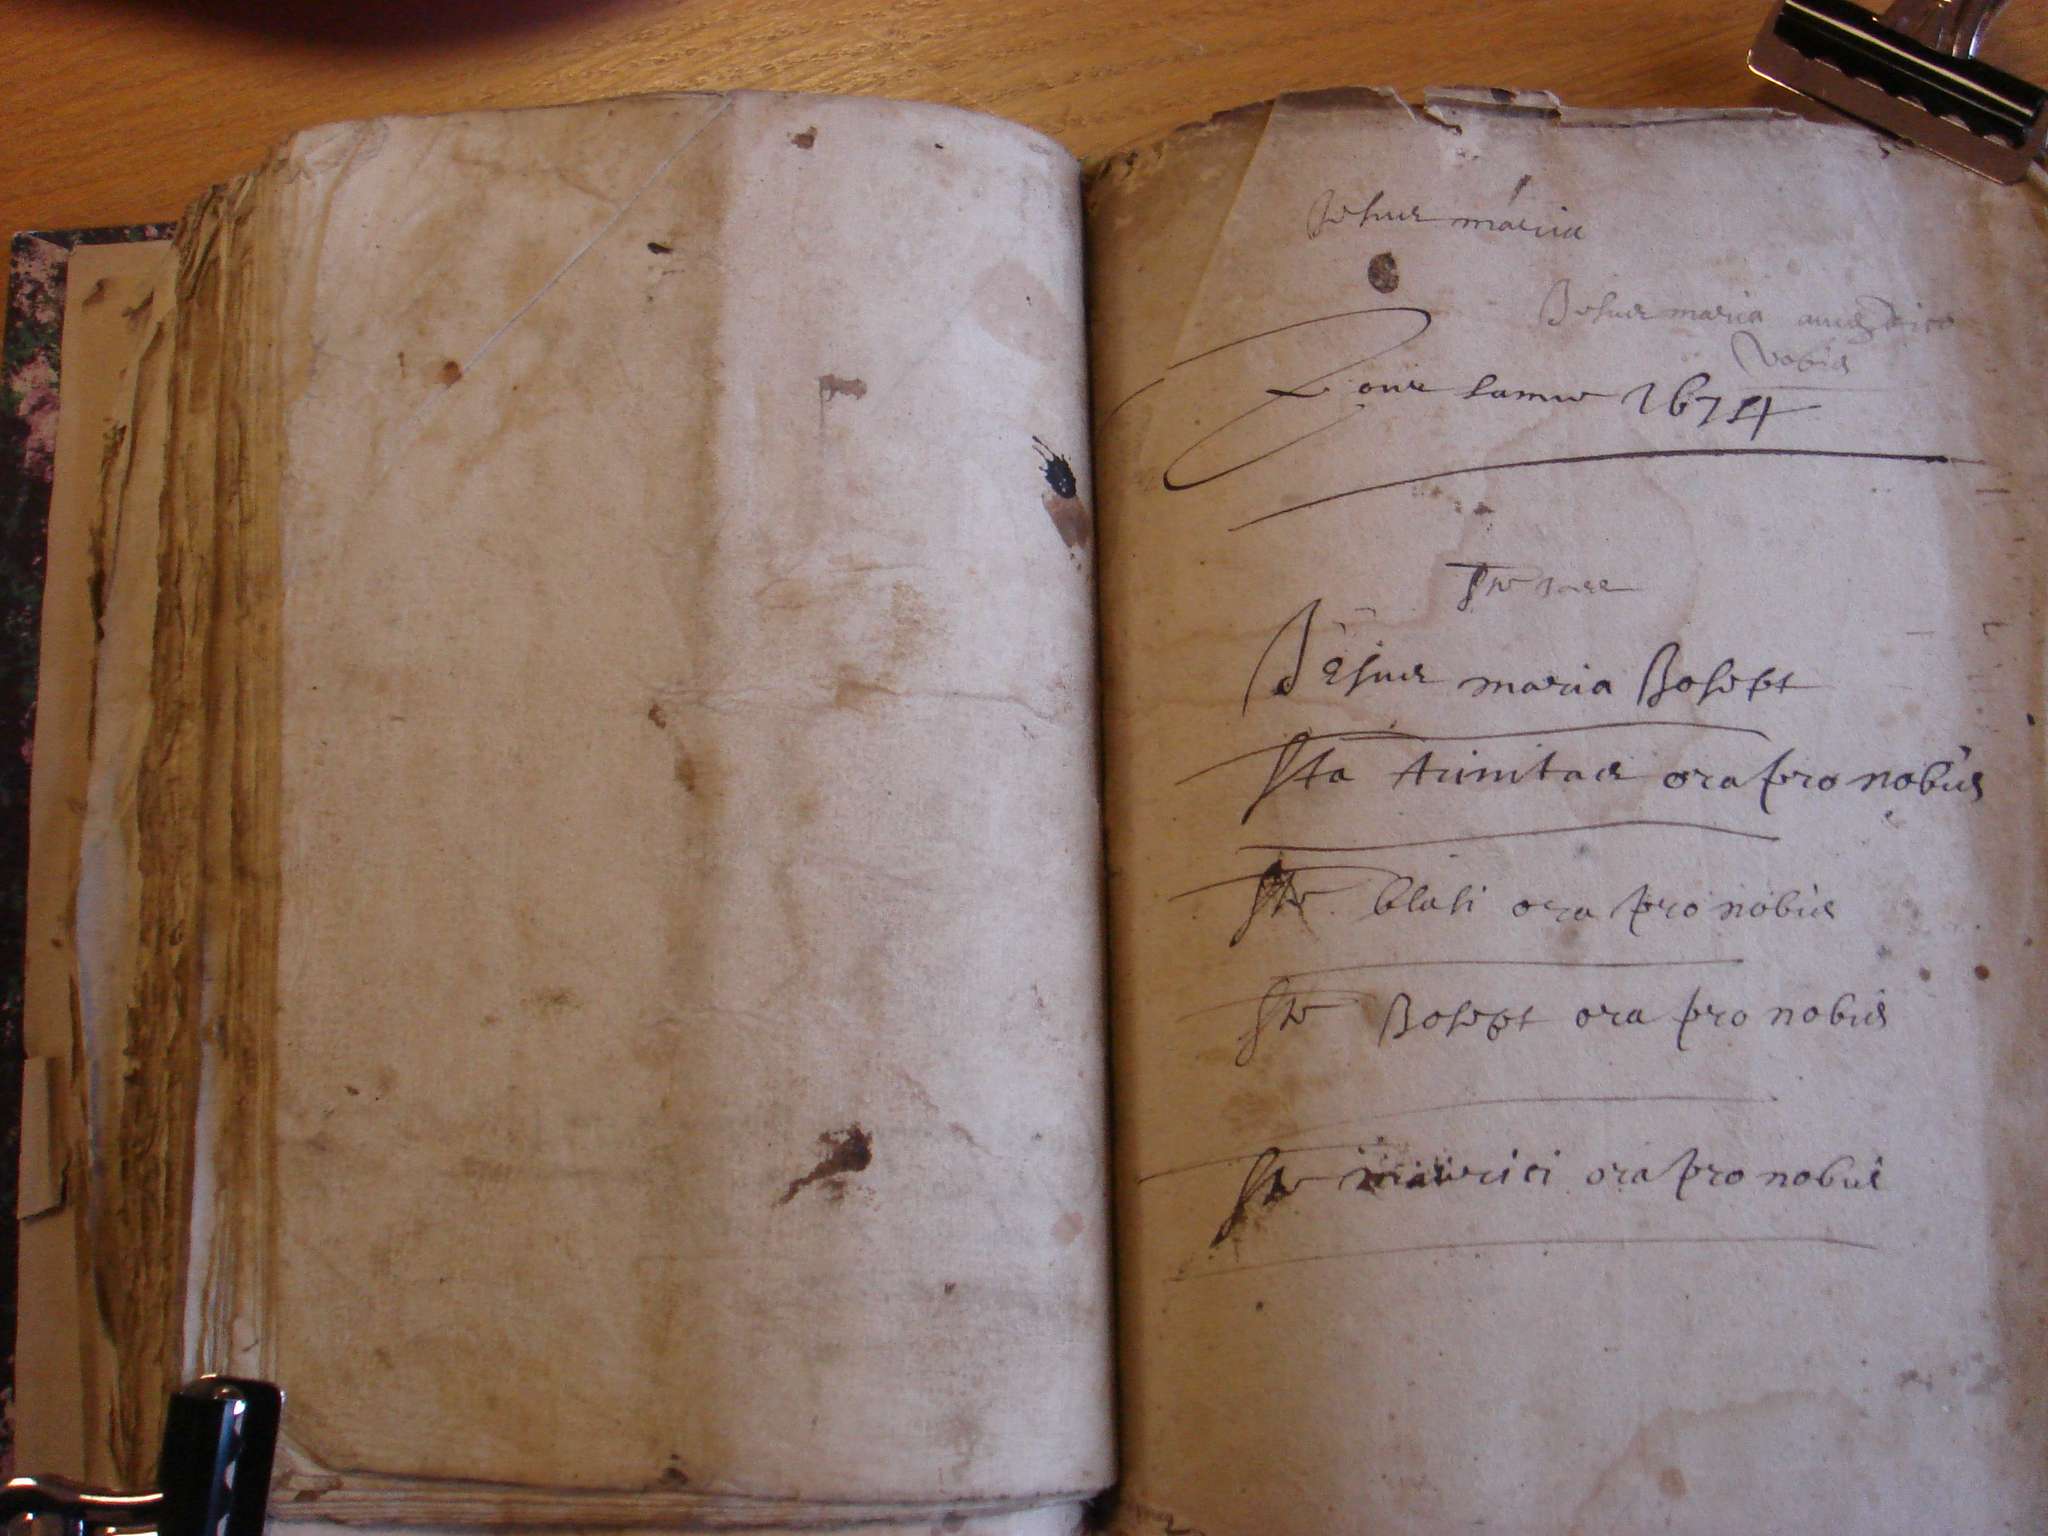 Jesus maria
Jesus maria amen dico
vobis
Pour lamer 1674
Ste
Jesus maria Josept
Sta trinitas ora pro nobis
Ste blasi ora pro nobis
Ste Josept ora pro nobis
Ste maurici ora pro nobis